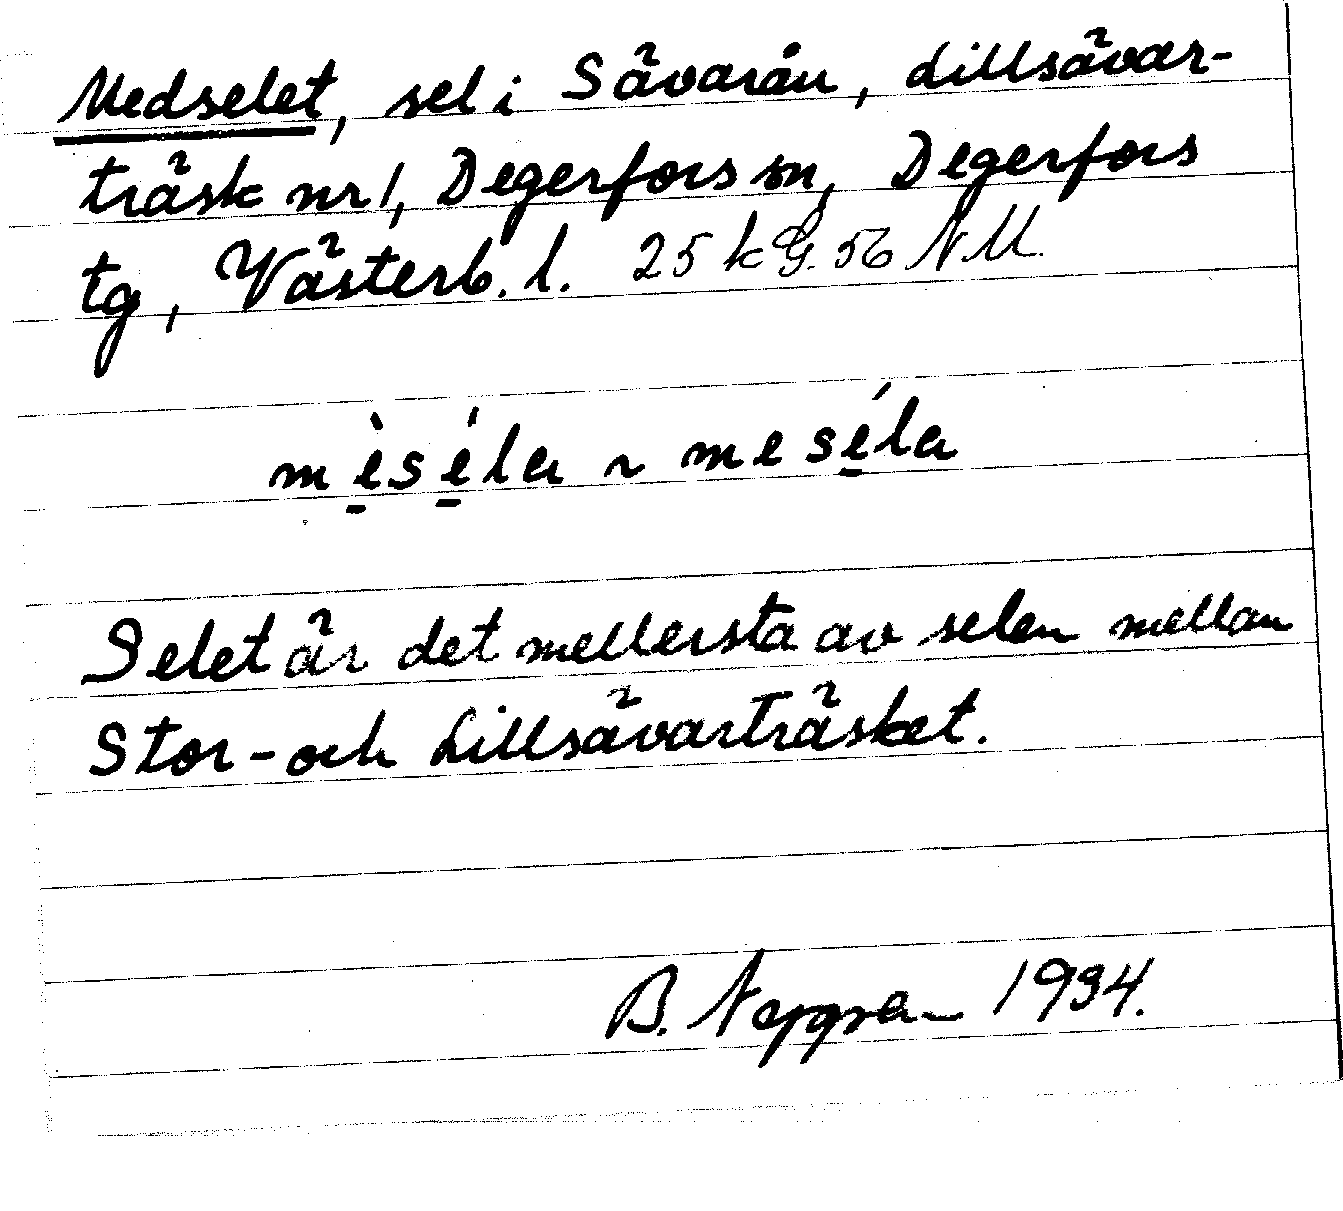 Medselet, sel i Sävarån, Lillsävar-
träsk nr 1, Degerfors sn, Degerfors
tg, Västerb. l. 25 k G. 56 NM.
mè̱sé̱la ~ mesé̱la
Selet är det mellersta av selen mellan
Stor- och Lillsävarträsket.
B. 1934.